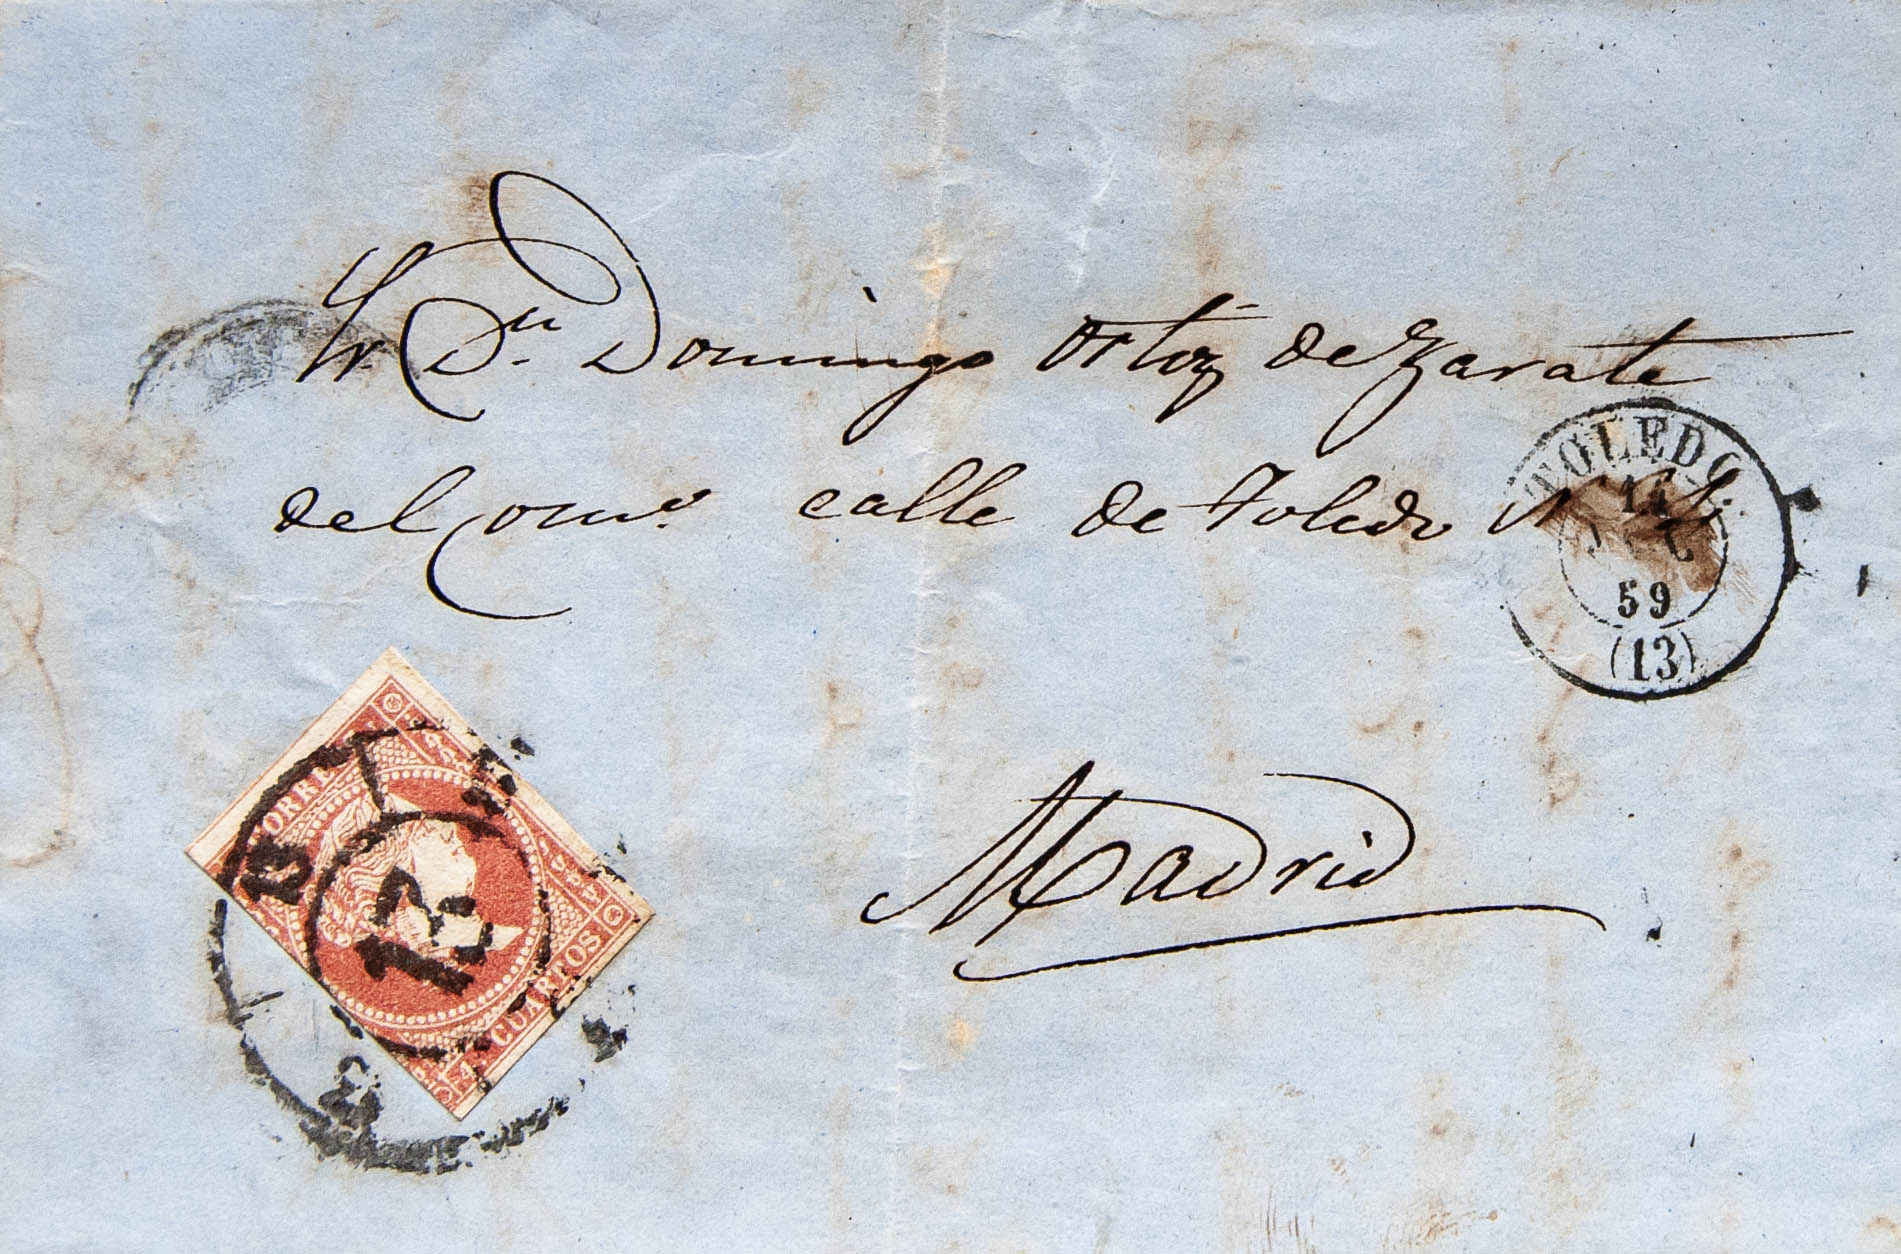 Sr. Dn. Domingo Ortiz de Zarate
del Comº. calle de Toledo Nº
TOLEDO
11
59
(13)
CORREOS
13
4 CUARTOS
Madrid